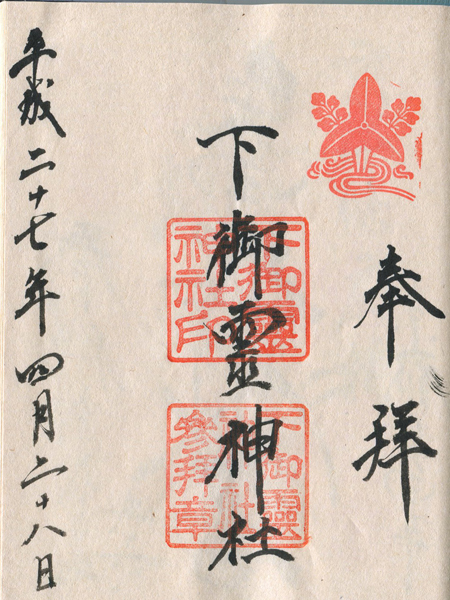 奉拝
下御靈神社
下御靈神社印
下御靈社社参拜章
平成二十七年四月二十八日